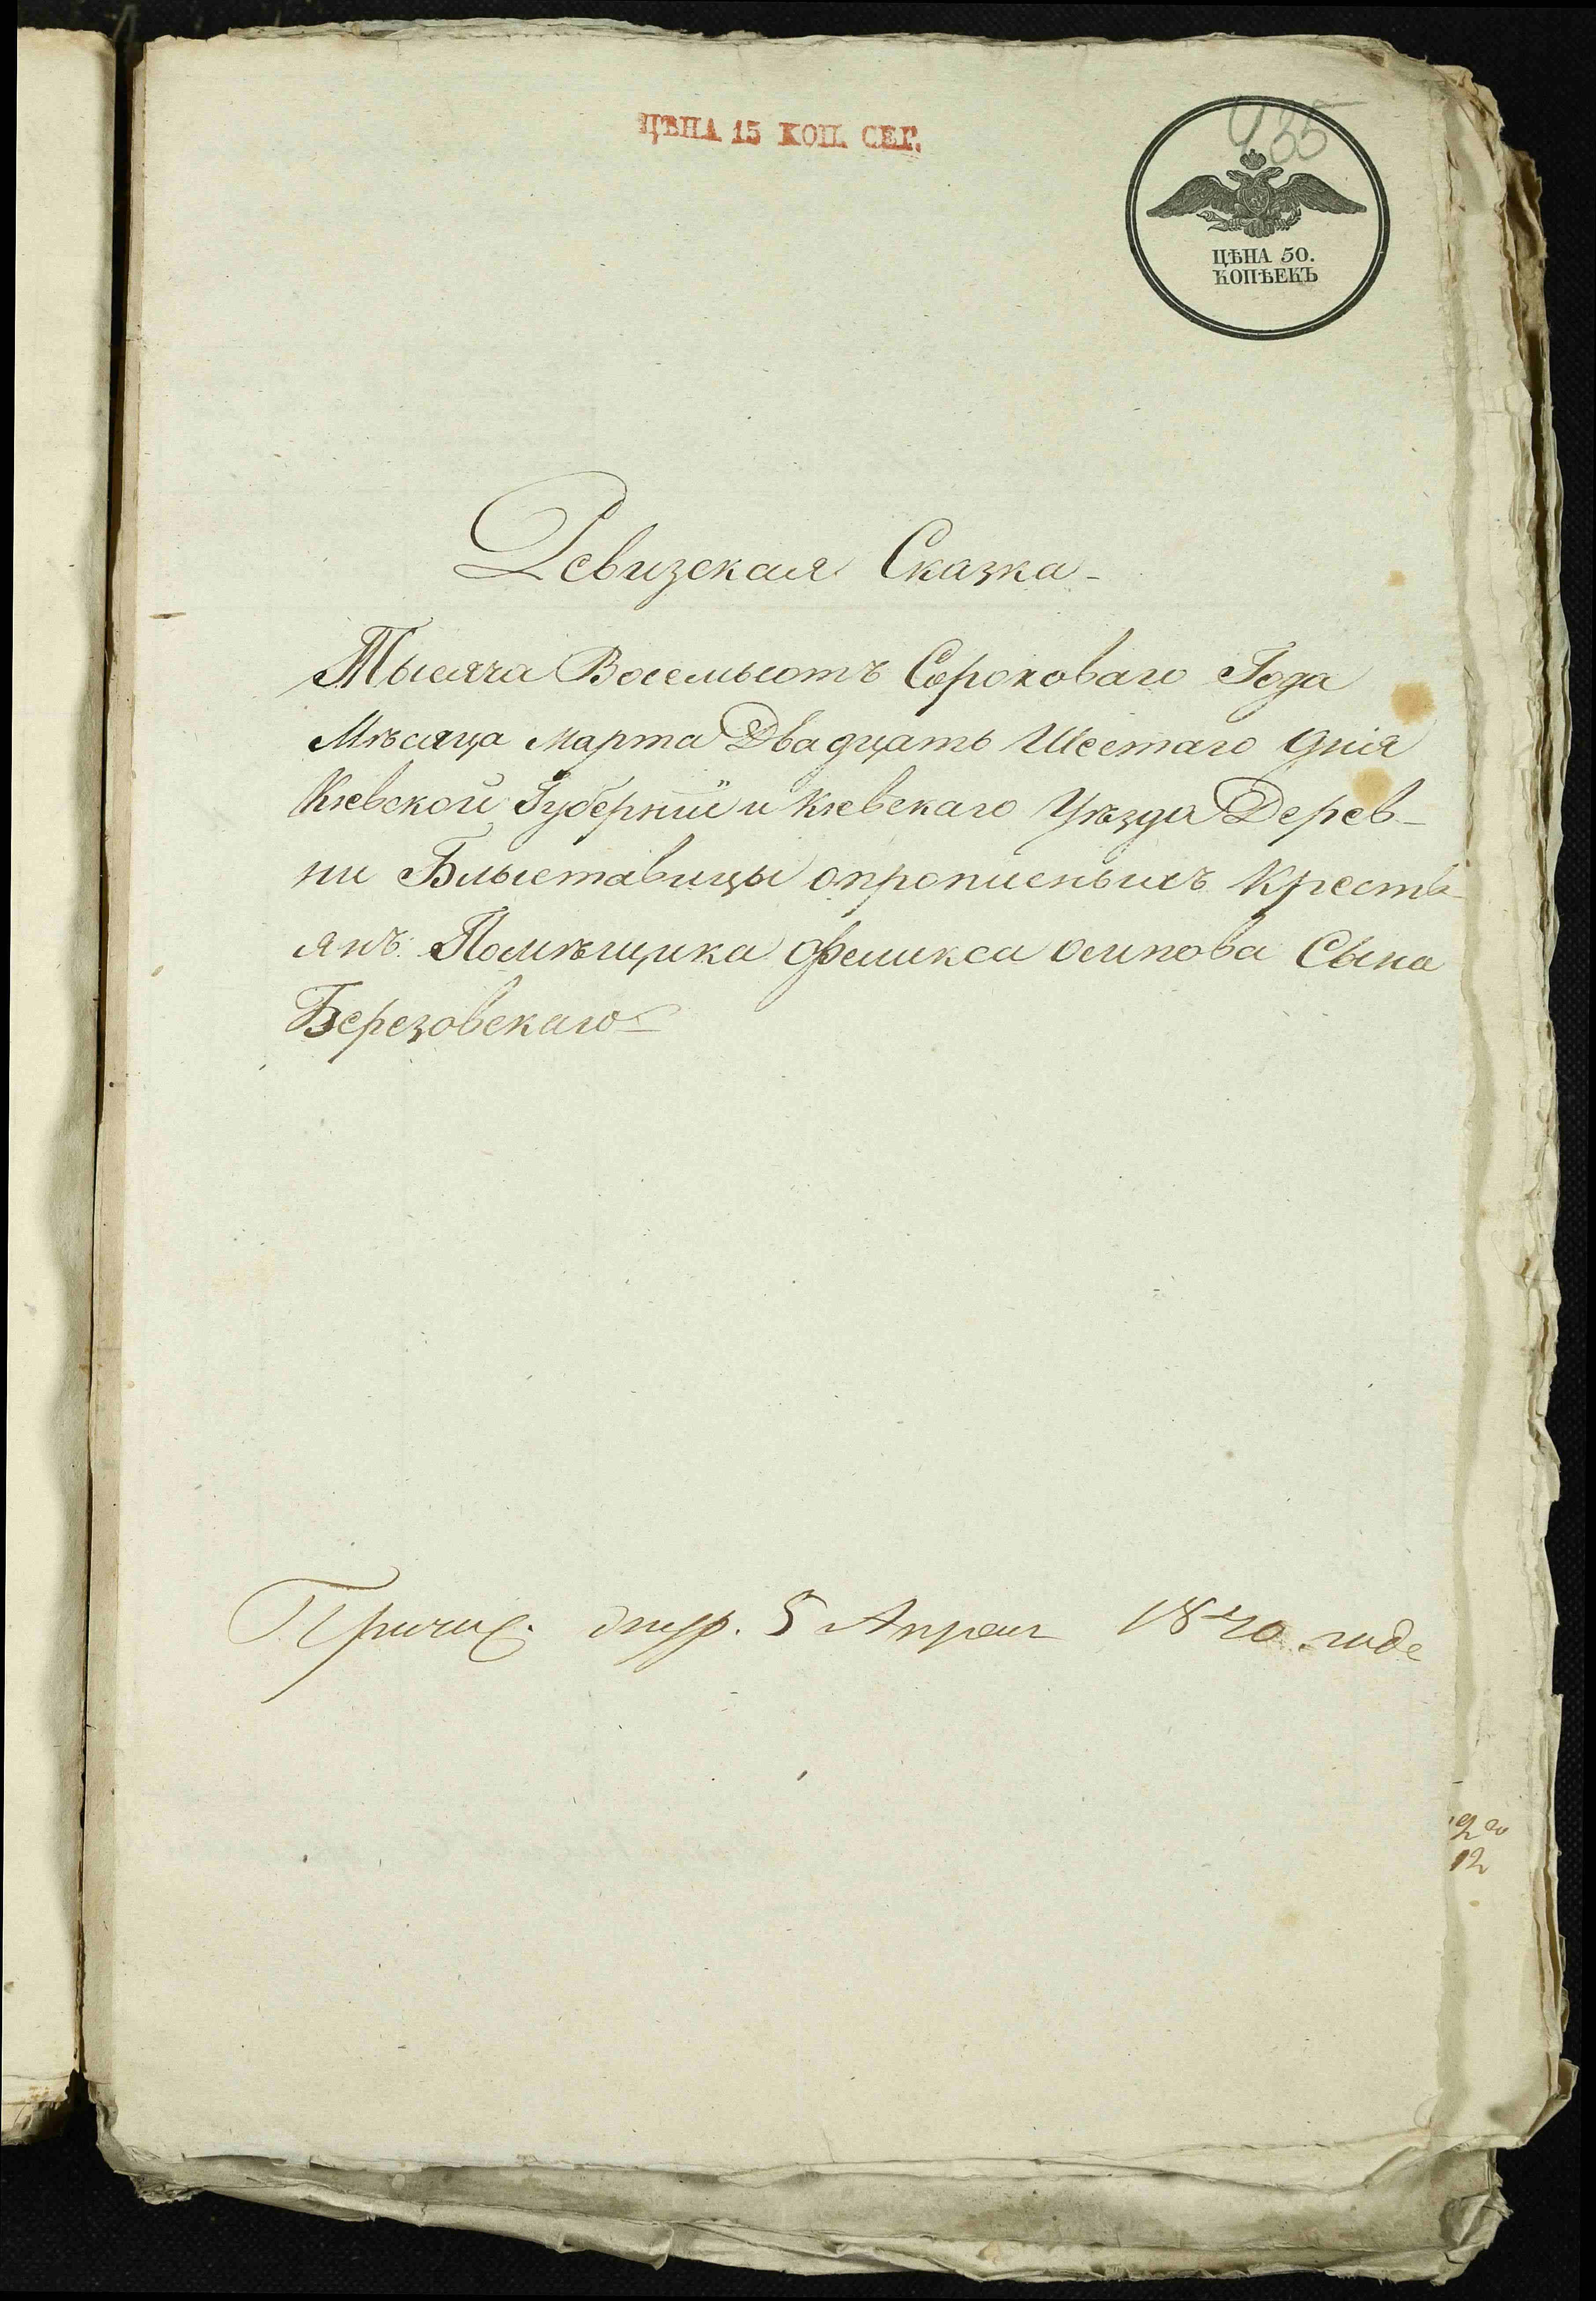 ЦѢНА 15 КОП. СЕР.
935
ЦѢНА 50.
КОПѢЕКЪ
Ревизская Сказка
Тысяча Восемьсотъ Сороковаго Года
Мѣсяца Марта Двадцать Шестаго дня
Кіевской Губерніи и Кіевскаго Уѣзда Дерев-
ни Блыставицы о прописныхъ Кресть-
янъ Помѣщика Феликса Осипова Сына
Березовскаго
5 Апреля 1840 года
12